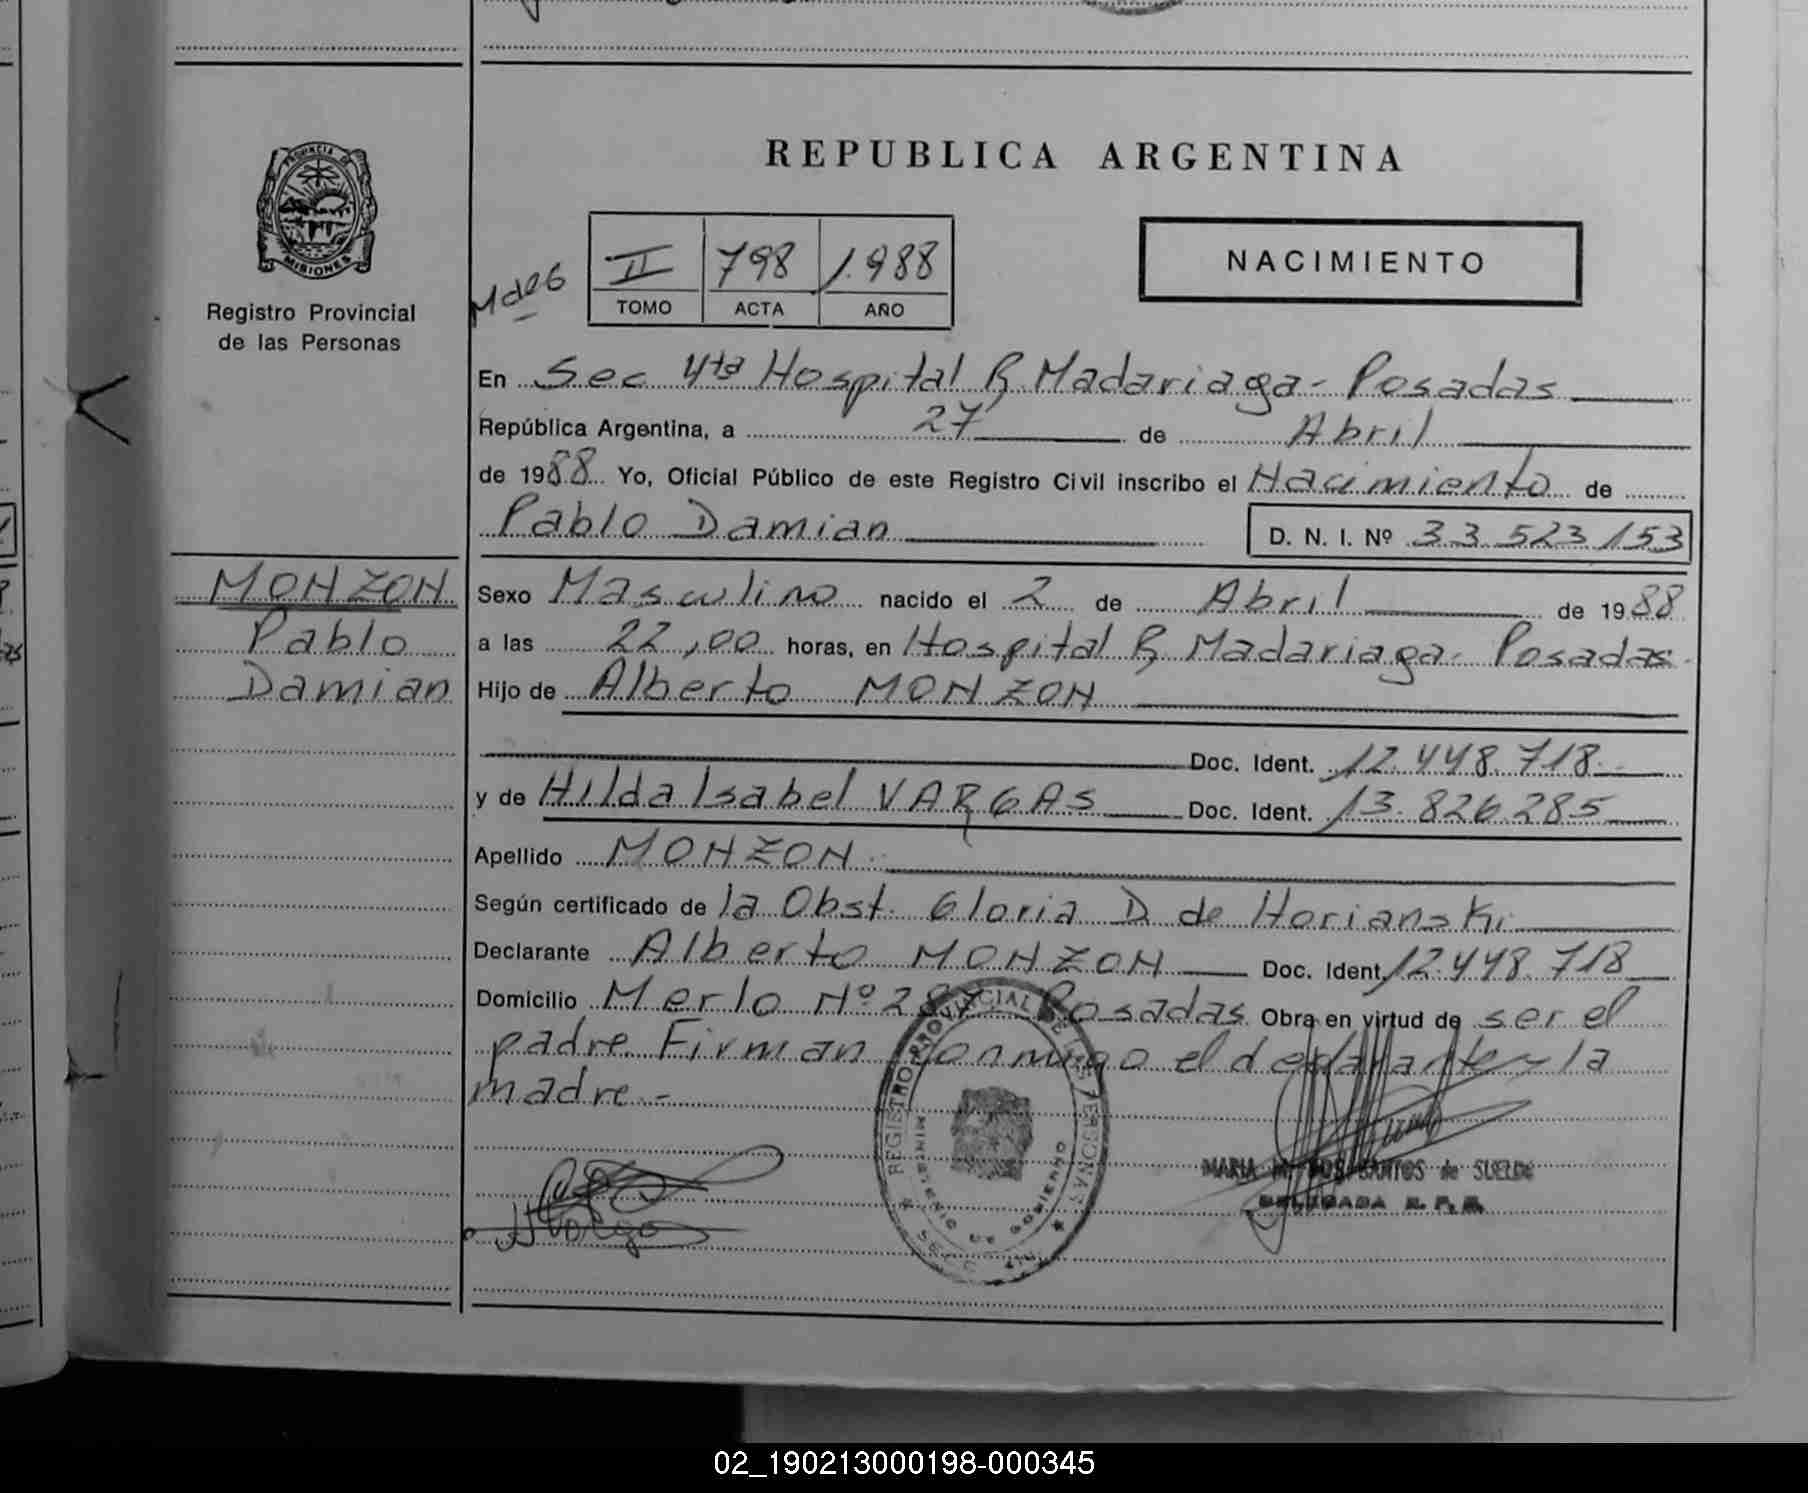 REPUBLICA ARGENTINA
PROVINCIA DE
MISIONES
Registro Provincial
de las Personas
II 798 1.988
TOMO ACTA AÑO
NACIMIENTO
En Sec 4ta Hospital R Madariaga - Posadas
República Argentina, a 27 de Abril
de 1988 Yo, Oficial Público de este Registro Civil inscribo el Nacimiento de
Pablo Damian D. N. I. Nº 33 523 153
MONZON
Pablo
Damian
Sexo Masculino nacido el 2 de Abril de 1988
a las 22,00 horas, en Hospital R Madariaga - Posadas
Hijo de Alberto MONZON
Doc. Ident. 12.448.718
y de Hilda Isabel VARGAS Doc. Ident. 13.826.285
Apellido MONZON
Según certificado de la Obst. Gloria D de Horianski
Declarante Alberto MONZON Doc. Ident. 12.448.718
Domicilio Merlo Nº Posadas Obra en virtud de ser el
padre Firman conmigo el declarante y la
madre -
REGISTRO PROVINCIAL DE LAS PERSONAS
MINISTERIO DE GOBIERNO
MARIA DOS SANTOS de SUELDE
DELEGADA R. P. P.
02_190213000198-000345